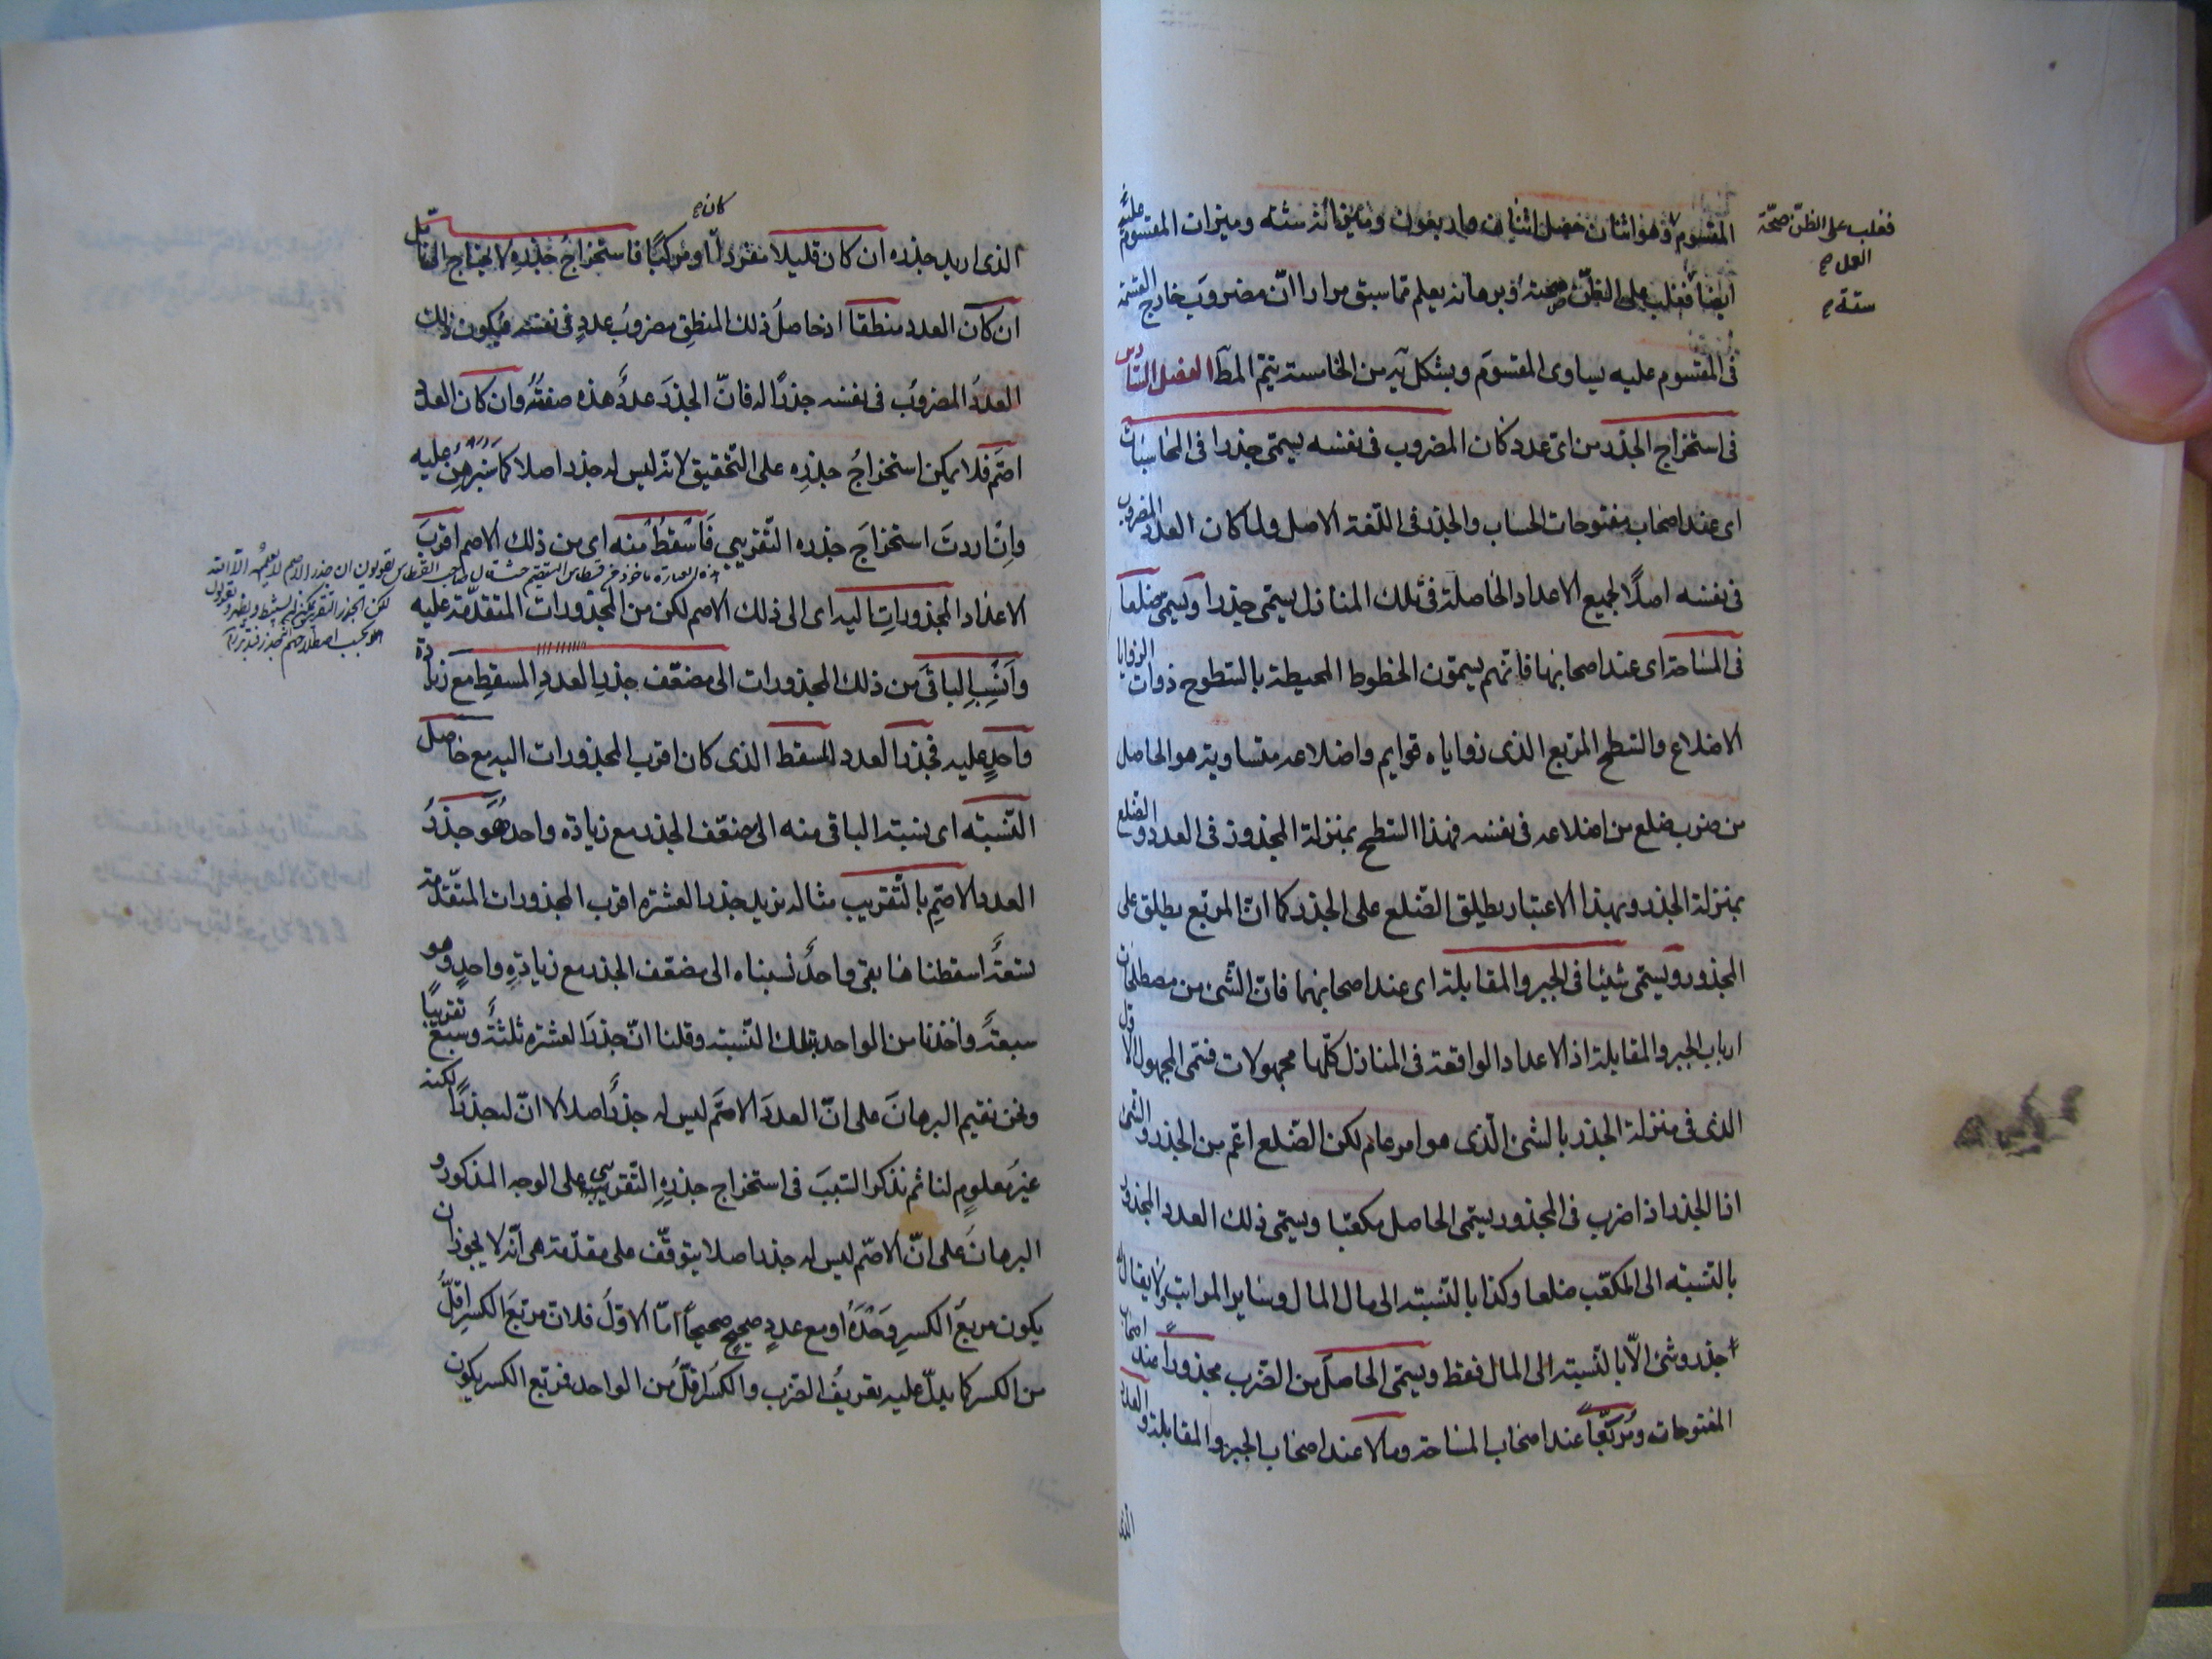 المقسوم وهو اثنان حصل اثنان وميزان المقسوم عليه
ايضا فغلب على الظن صحته وبرهانه يعلم مما سبق مرارا ان مضروب خارج القسمة
فى المقسوم عليه يساوى المقسوم وبشكل يد من الخامسة يتم المط الفصل السادس
فى استخراج الجذر من اى عدد كان المضروب فى نفسه يسمى جذرا فى المحاسبات
اى عند اصحاب مفتوحات الحساب والجذر فى اللغة الاصل ولما كان العدد المضروب
فى نفسه اصلا لجميع الاعداد الحاصلة فى تلك المنازل يسمى جذرا ويسمى ضلعا
فى المساحة اى عند اصحابها فانهم يسمون الخطوط المحيطة بالسطوح ذوات الزوايا
الاضلاع والسطح المربع الذى زواياه قوايم واضلاعه متساوية هو الحاصل
من ضرب ضلع من اضلاعه فى نفسه فهذا السطح بمنزلة المجذور فى العدد والضلع
بمنزلة الجذر وبهذا الاعتبار يطلق الضلع على الجذر كما ان المربع يطلق على
المجذور ويسمى شيئا فى الجبر والمقابلة اى عند اصحابهما فان الشئ من مصطلحات
ارباب الجبر والمقابلة اذ الاعداد الواقعة فى المنازل كلها مجهولات فسمى المجهول الاول
الذى فى منزلة الجذر بالشئ الذى هو امر عام لكن الضلع اعم من الجذر والشئ
اذا الجذر اذا ضرب فى المجذور يسمى الحاصل مكعبا ويسمى ذلك العدد المجذور
بالنسبة الى المكعب ضلعا وكذا بالنسبة الى مال المال وساير المراتب ولا يقال له
جذر وشئ الا بالنسبة الى المال فقط ويسمى الحاصل من الضرب مجذورا عند اصحاب
المفتوحات ومربعا عند اصحاب المساحة ومالا عند اصحاب الجبر والمقابلة والعدد
الذى
فغلب على الظن صحة
العمل صح
ستة صح
كان صح
الذى اريد جذره ان كان قليلا مفردا او مركبا فاستخراج جذره لا يحتاج الى تامل
ان كان العدد منطقا اذ حاصل ذلك المنطق مضروب عدد فى نفسه فيكون ذلك
العدد المضروب فى نفسه جذرا له فان الجذر عدد هذه صفته وان كان العدد
اصم فلا يمكن استخراج جذره على التحقيق لانه ليس له جذر اصلا كما سنبرهن عليه
وان اردت استخراج جذره التقريبى فاسقط منه اى من ذلك الاصم اقرب
الاعداد المجذورات اليه اى الى ذلك الاصم لكن من المجذورات المتقدمة عليه
وانسب الباقى من ذلك المجذورات الى مضعف جذر العدد المسقط مع زيادة
واحد عليه فجذر العدد المسقط الذى كان اقرب المجذورات اليه مع حاصل
النسبة اى نسبة الباقى منه الى ضعف الجذر مع زيادة واحد هو جذر
العدد الاصم بالتقريب مثاله نريد جذر العشرة اقرب المجذورات المتقدمة
تسعة اسقطنا فبقى واحد نسبناه الى مضعف الجذر مع زيادة واحد وهو
سبعة واخذنا من الواحد بتلك النسبة وقلنا ان جذر العشرة ثلثة وسبع تقريبا
ونحن نقيم البرهان على ان العدد الاصم ليس له جذر اصلا لا ان له جذرا لكنه
غير معلوم لنا ثم نذكر السبب فى استخراج جذره التقريبى على الوجه المذكور و
البرهان على ان الاصم ليس له جذر اصلا يتوقف على مقدمة هى انه لا يجوز ان
يكون مربع الكسر وحده او مع عدد صحيح صحيحا اما الاول فلان مربع الكسر اقل
من الكسر كما يدل عليه تعريف الضرب والكسر اقل من الواحد فمربع الكسر يكون